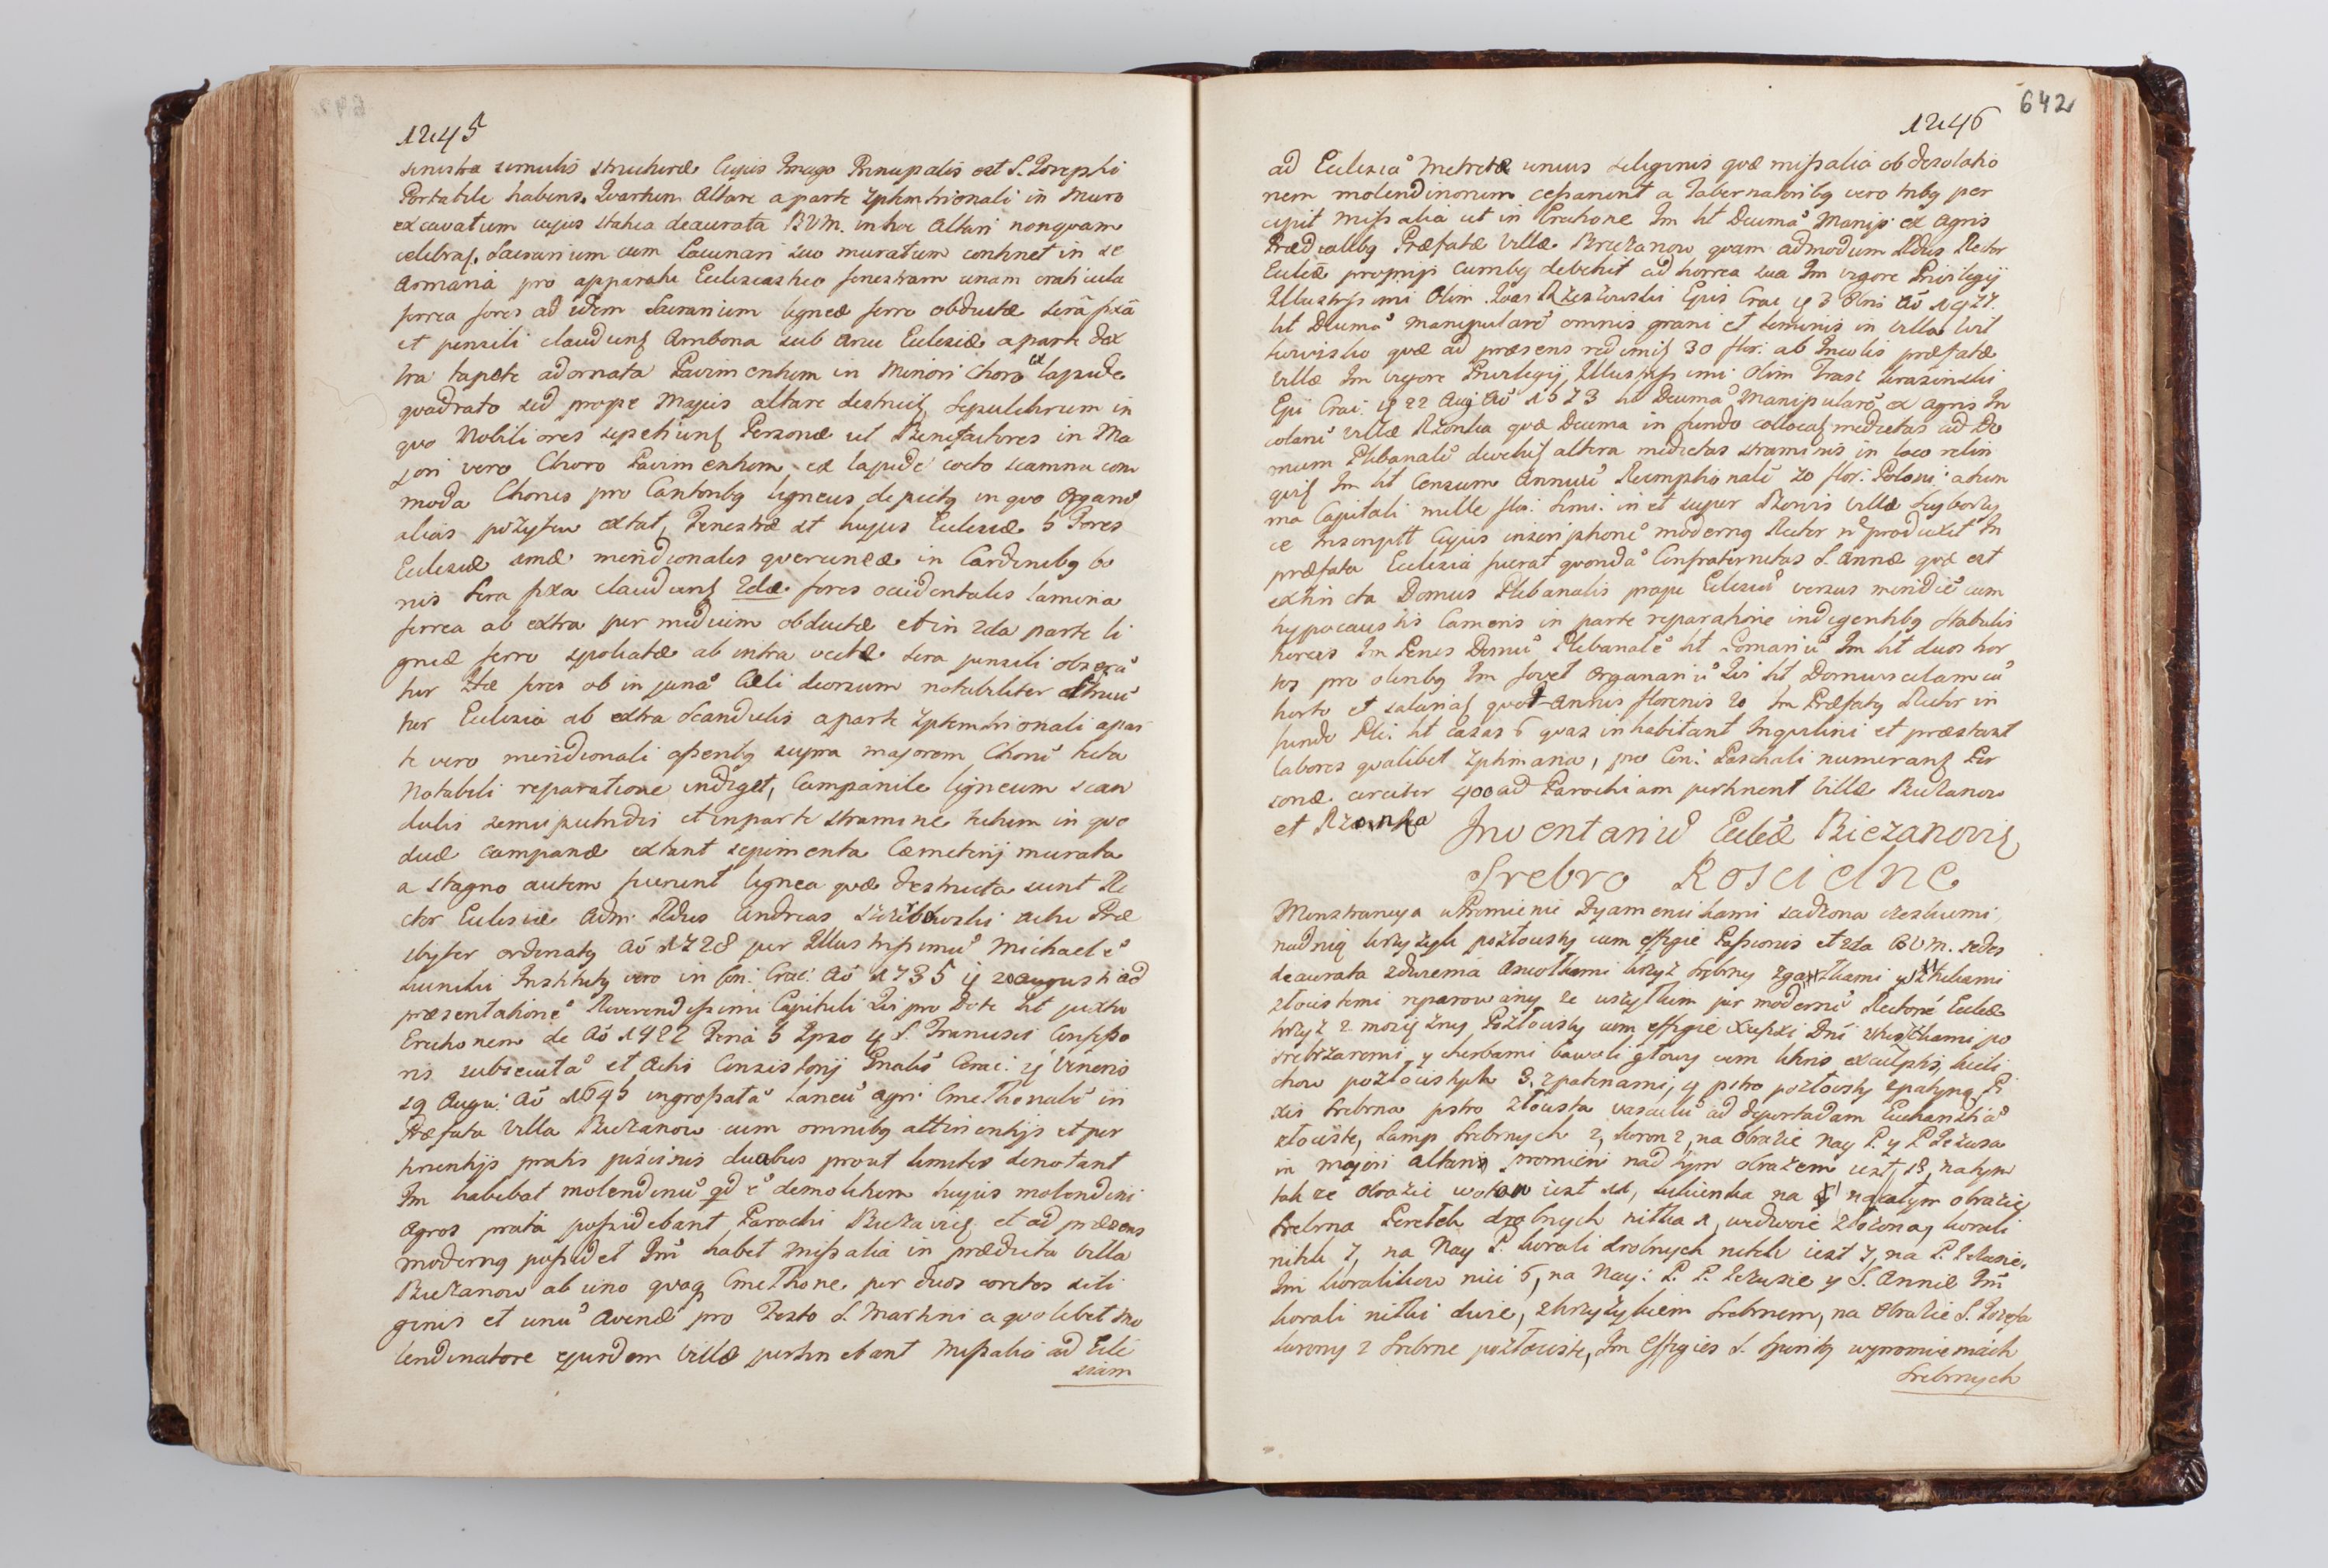 1245
sinistra simulis structuræ Cujus Imago Principalis est S. Josephi
Portatile habens. Quartum Altare a parte Septemtrionali in Muro
excavatum cujus statua deaurata BVM. in hoc Altari nonquam
celebrat. Sacrarium cum Lacunari suo muratum continet in se
Armaria pro apparatu Ecclesiastico fenestram unam craticula
ferrea fores ad idem Sacrarium ligneæ ferro obductæ sera fixa
et pensili claudunt Ambona sub Arcu Ecclesiæ a parte dex
tra tapete adornata Pavimentum in Minori Choro ex lapide
quadrato sed prope Majus altare destruct Sepulchrum in
quo Nobiliores sepeliunt Personæ ut Benefactores in Ma
jori vero Choro Pavimentum ex lapide cocto scamna com
moda Chorus pro Cantoribq ligneus depictq in quo organũ
alias pozytyw extat, Fenestræ st hujus Ecclesiæ 5 Fores
Ecclesiæ amæ meridionales querceneæ in Cardinibq bo
nis sera fixa claudunt 2dæ fores occidentales lamina
ferrea ab extra per medium obductæ et in 2da parte li
gneæ ferro spoliatæ ab intra vecte sera pensili obserã
tur Ittæ fores ob injuriã Cæli deorsum notabiliter
tur Ecclesia ab extra Scandulis a parte Septemtrionali a par
te vero meridionali asseribq supra majorem Chorũ tecta
Notabili reparatione indiget, Campanile ligneum scan
dulis semiputridis et in parte stramine tectum in quo
duæ campanæ extant sepimenta Cæmeterij murata
a stagno autem fuerunt lignea quæ destructa sunt Re
ctor Ecclesiæ Adm. Rdus Andreas actu Præ
sbyter ordinatq Aõ 1728 per Illustrissimũ Michaelẽ
Kunicki Institutq vero in Con: Crac: Aõ 1735 ij 20 augusti ad
præsentationẽ Reverendissimi Capituli Qui pro Dote ht juxta
Erectionem de Aõ 1422 Feria 5 Ipso ij S. Francisci Confesso
ris subsecutã et Actis Consistorij Gnalis Crac: ij Veneris
29 Augu: Aõ 1645 ingrossatã Laneũ agri Cmethonalẽ in
Præfata Villa Biezanow cum omnibq attinentijs et per
tinentijs pratis piscinis duabus prout limites denotant
Im habebat molendinũ qd ẽ demolitum hujus molendini
Agros prata possidebant Parochi Biezaviens et ad præsens
modernq possidet Im habet Missalia in prædicta Villa
Biezanow ab uno quoq Cmethone per duos coretos sili
ginis et unũ Avenæ pro Festo S. Martini a quolibet Mo
lendinatore ejusdem Villæ pertinebant Missalia ad Ecle
siam
642
1246
ad Ecclesiã Metretæ unius siliginis quæ missalia ob desolatio
nem molendinorum cessarunt a Tabernatoribq vero tribq per
cipit Missalia ut in Erectione Im ht Decimã Manip: ex Agris
Prædialibq Præfatæ Villæ Biezanow quam admodum Rdus Rector
Ecclæ proprijs curribq devehit ad horrea sua Im vigore Privilegij
Illustrissimi Olim Joãs Rzeszowski Epis Crac ij 3 8bris Aõ 1477.
ht Decimã manipularẽ omnis grani et seminis in Villa
quæ ad præsens redimit 30 flor: ab Incolis præfatæ
Villæ Im vigore Privilegij, Illustrissimi Olim Franc Krasinski
Epi Crac: ij 22 Aug: Aõ 1573 ht Decimã Manipularẽ ex Agris In
colarũ Villæ Rzonka quæ Decima in fundo collocat medietas ad Do
mum Plebanalẽ devehit altera medietas straminis in loco relin
quit Im ht Censum Annuũ Reemptionalẽ 20 flor: Poloni: a sum
ma Capitali mille flo: Simi: in et super Bonis Villæ
ce Inscriptt Cujus inscriptionẽ modernq Rector ñ produxit In
præfata Ecclesia fuerat quondã Confraternitas S. Annæ quæ est
extincta Domus Plebanalis prope Eclesiã versus meridiẽ cum
hypocaustis Cameris in parte reparatione indigentibq stabulis
horreis Im Penes Domũ Plebanalẽ ht Pomariũ Im ht duos hor
tos pro oleribq Im fovet Organariũ Qui ht Domunculam cũ
horto et salariat quot-annis florenis 20 Im Præfatq Rector in
fundo Ple: ht casas 6 quas inhabitant Inquilini et præstant
labores qualibet Septimana, pro Con: Paschali numerant Per
sonæ circiter 400 ad Parochiam pertinent Villæ Biezanow
et Rzonka Inventariũ Ecclæ Biezanoviens
Srebro Koscielne
Monstrancya w Promienie Dyamencikami sadzona czeskiemi,
nad nią krzyżyk pozłocisty cum effigie Passionis et 2da BVM. sedes
deaurata zdwiema Aniołkami krzyż srebrny zgałkami y sztukami
złocistemi reparowany ze wszytkim per modernũ Rectorẽ Ecclæ
krzyż 2 mosiężny Pozłocisty cum effigie Xufixi Dni zkoszczkami po
srebrzanemi y herbami Bawoli głowy cum literis exculptis, kieli
chow pozłocistych 3, zpatinami, y pstro pozłocisty zpatyną, Pi
xis srebrna pstro złocista vasculũ ad deportadam Euchanstiã
złociste, Lamp srebrnych 2, koron 2, na Obrazie Nay P. y P Jezusa
in majori altari promieni nad tym obrazem iest 18, na tym
takze obrazie wotow iest 11, sukienka na tym obrazie
srebrna Perełek drobnych nitka 1, wedwoie złożona, korali
nitek 7, na Nay P. korali drobnych nitek iest 7, na P. Jezusie.
Im koralikow nici 6, na Nay: P. P. Jezusie y S. Annie Im
korali nitki dwie, zkrzyżykiem srebrnem, na Obrazie S. Jozefa
korony 2 srebrne pozłociste, Im Effigies S. Spiritq wpromieniach
srebrnych